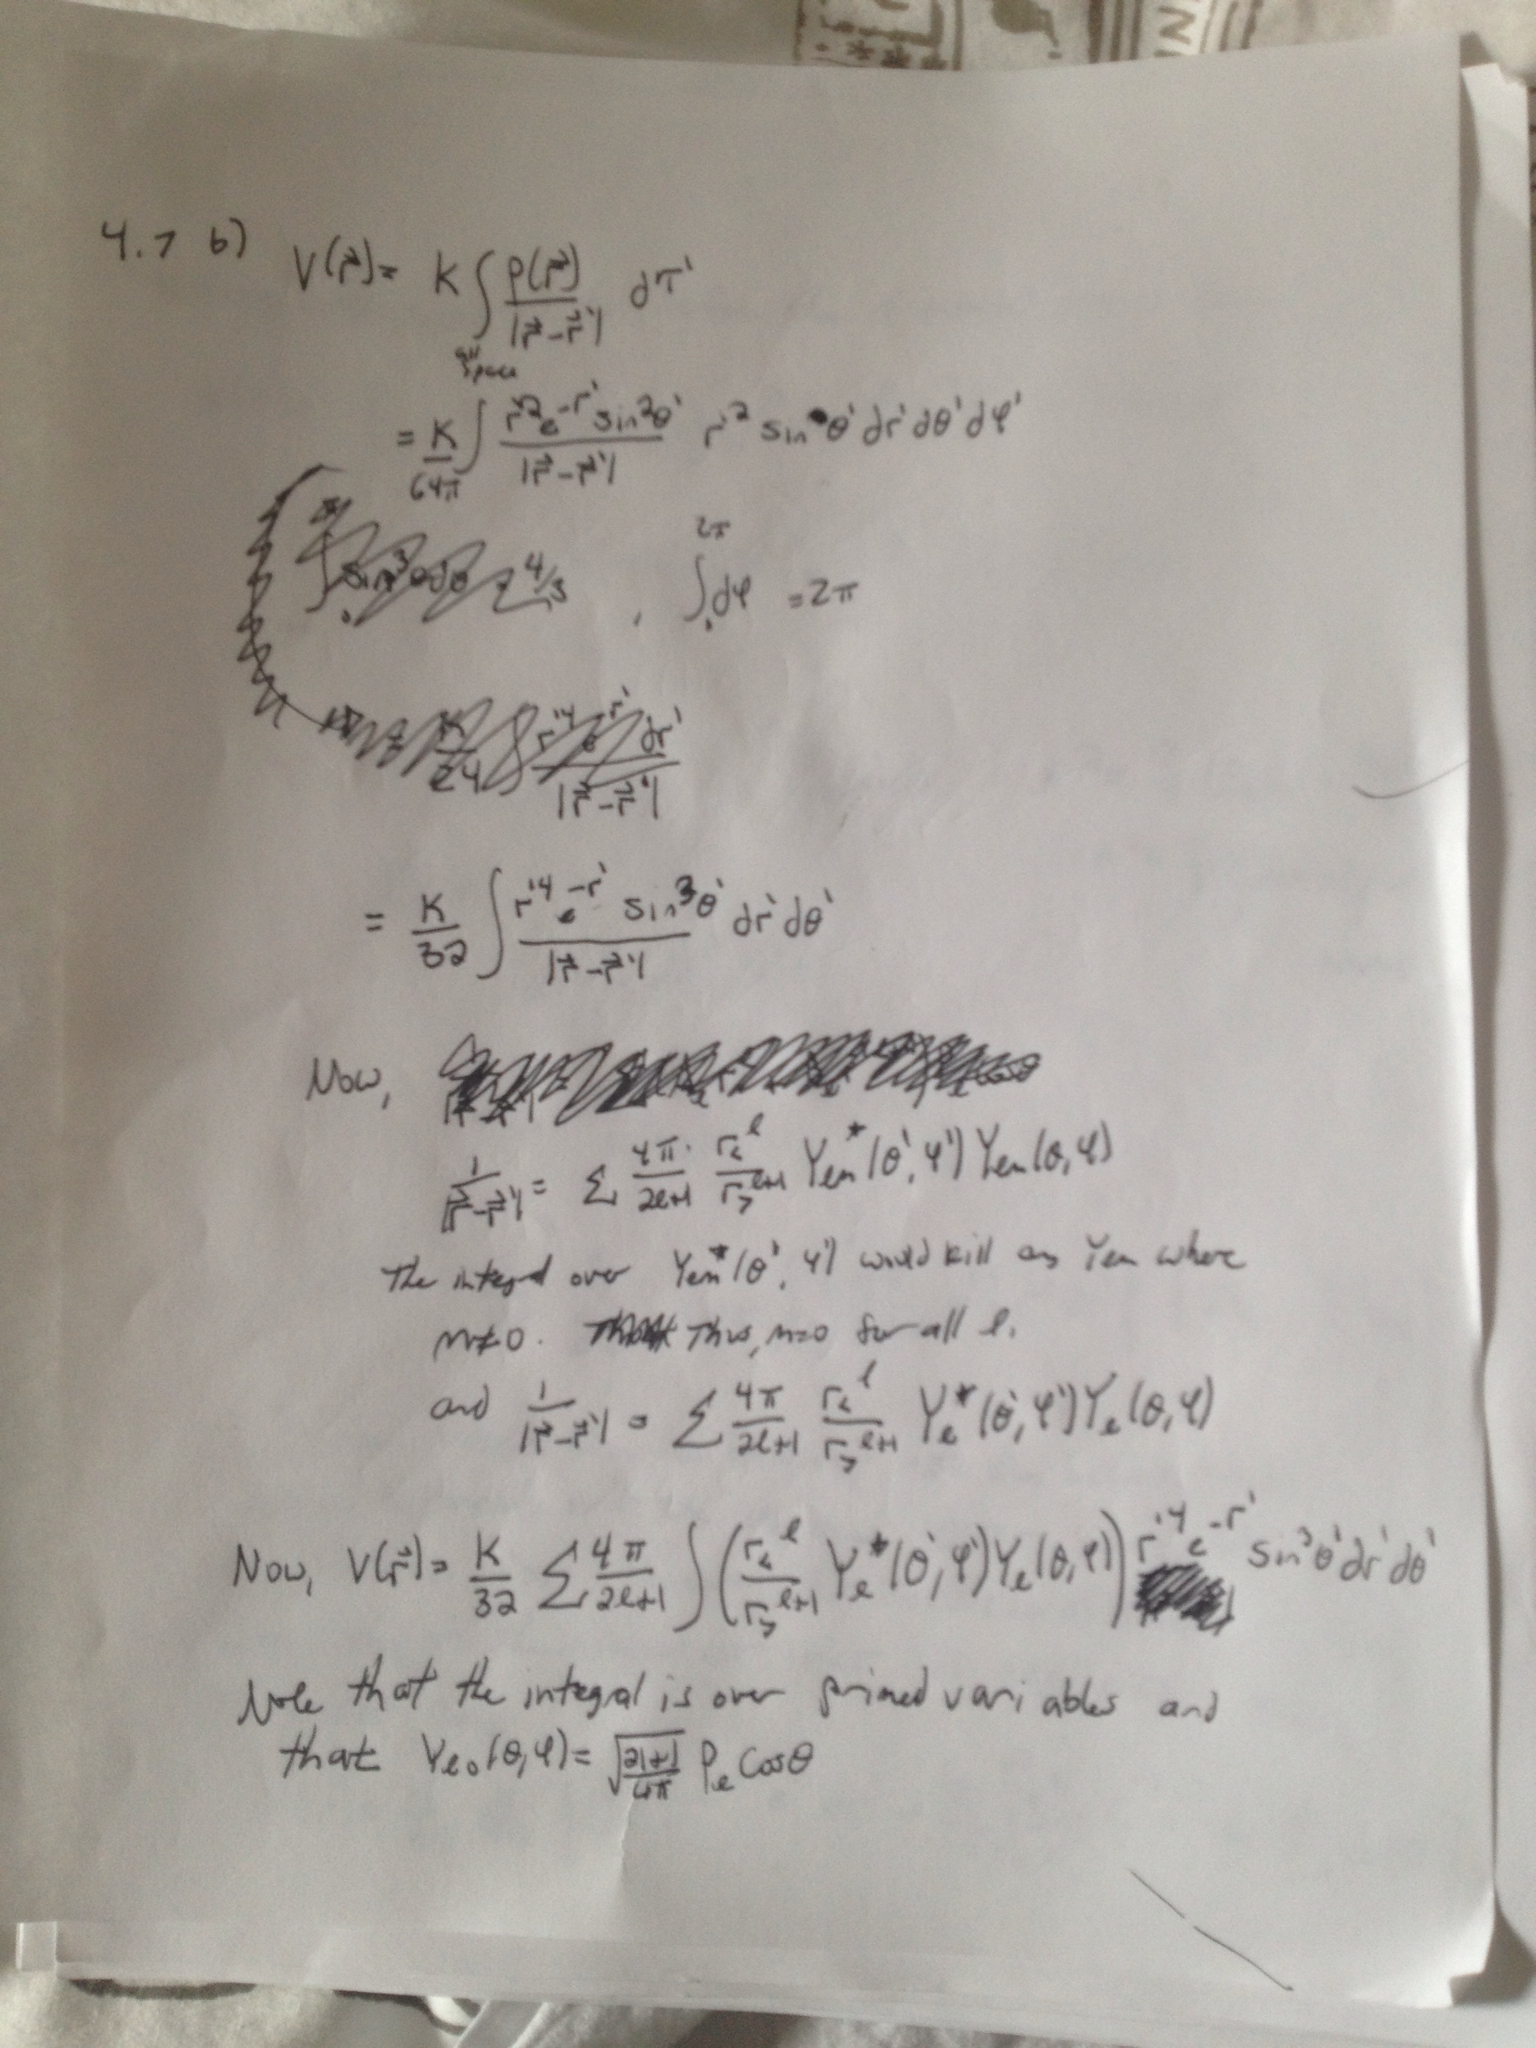 4.7 b) V(r⃗) = K ∫ ρ(r⃗) / |r⃗-r⃗'| dτ'
all space
= K/64π ∫ r'² e^-r' sin²θ' / |r⃗-r⃗'| r'² sin θ' dr' dθ' dφ'
∫ sin³θdθ = 4/3 , ∫₀^2π dφ = 2π
K/24 ∫ r'⁴ e^-r' dr' / |r⃗-r⃗'|
= K/32 ∫ r'⁴ e^-r' sin³θ' / |r⃗-r⃗'| dr' dθ'
Now,
1/|r⃗-r⃗'| = Σ 4π/2l+1 r<^l / r>^l+1 Ylm*(θ', φ') Ylm(θ, φ)
The integral over Ylm*(θ', φ') would kill any Ylm where
m≠0. Thus, m=0 for all l.
and 1/|r⃗-r⃗'| = Σ 4π/2l+1 r<^l / r>^l+1 Yl*(θ', φ') Yl(θ, φ)
Now, V(r⃗) = K/32 Σ 4π/2l+1 ∫ (r<^l / r>^l+1 Yl*(θ', φ') Yl(θ, φ)) r'⁴ e^-r' sin³θ' dr' dθ'
Note that the integral is over primed variables and
that Yl0(θ, φ) = √(2l+1/4π) Pl Cosθ